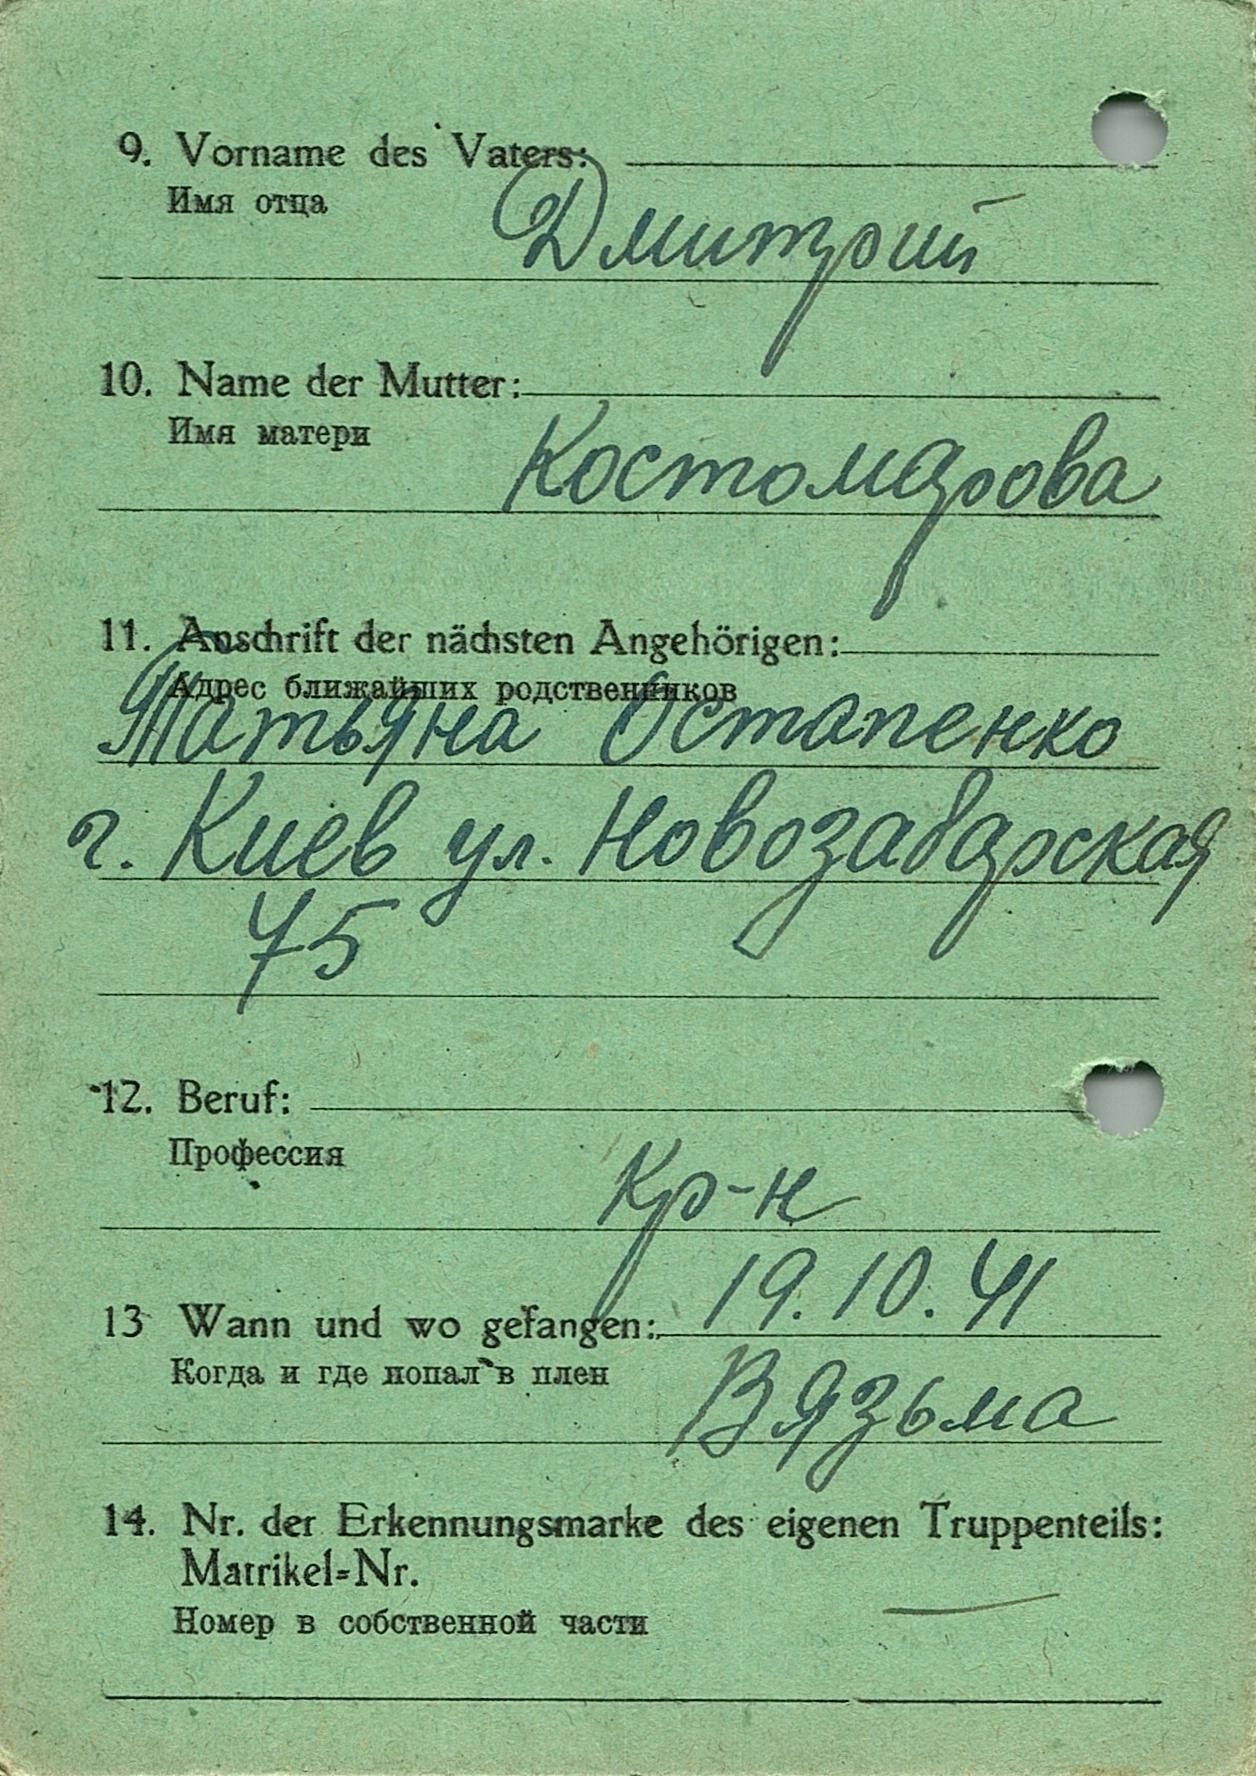 9. Vorname des Vaters:
Имя отца
Дмитрий
10. Name der Mutter:
Имя матери
Костомарова
11. Anschrift der nächsten Angehörigen:
Адрес ближайших родственников
Татьяна Остапенко
г. Киев ул. Новозабарская
75
12. Beruf:
Профессия
Кр-н
19.10.41
13 Wann und wo gefangen:
Когда и где попал в плен
Вязьма
14. Nr. der Erkennungsmarke des eigenen Truppenteils:
Matrikel-Nr.
Номер в собственной части